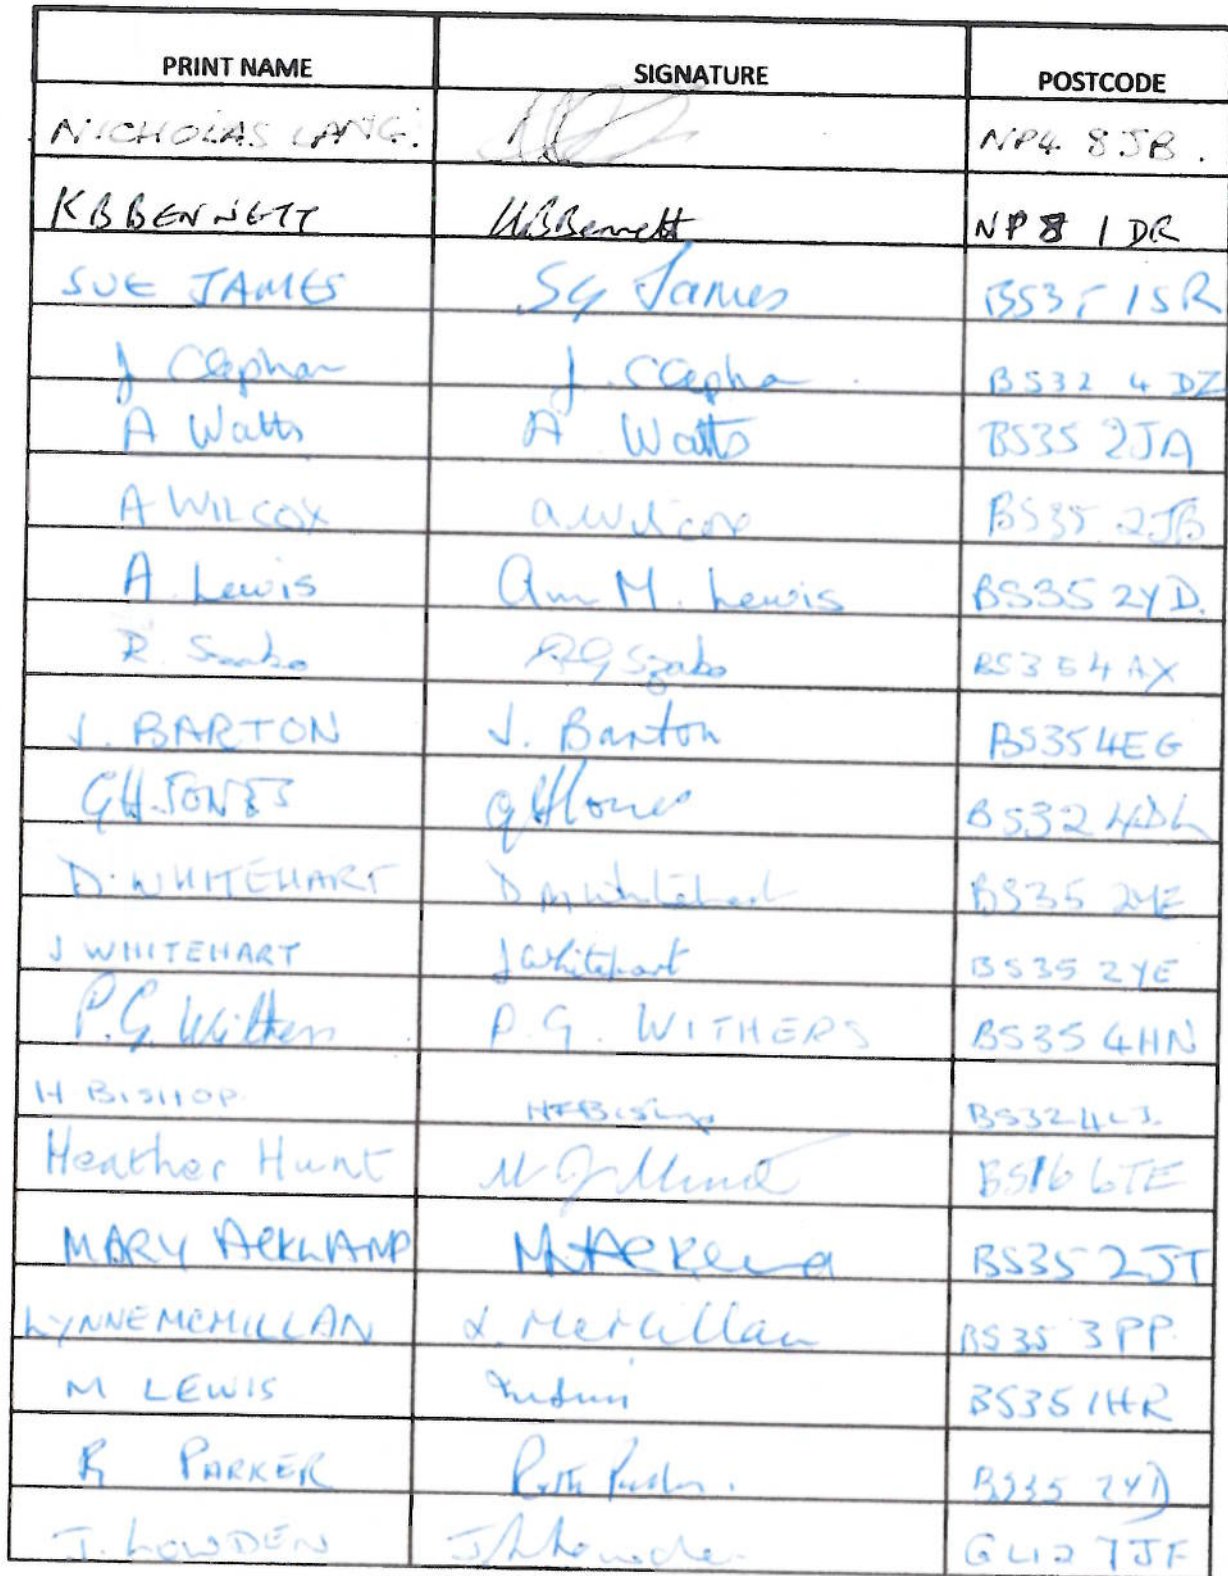 PRINT NAME SIGNATURE POSTCODE
NICHOLAS LANG. NP4 8JB.
KB BENNETT KBBennett NP8 1DR
SUE JAMES SG James BS35 1SR
J Clapham J. Clapha BS32 4DZ
A Watts A Watts BS35 2JA
A WILCOX a.wilcox BS35 2JB
A. Lewis Ann M. Lewis BS35 2YD.
R. Szabo RG Szabo BS35 4AX
J. BARTON J. Barton BS35 4EG
GH. JONES GHJones BS32 4DL
D. WHITEHART D M Whitehart BS35 2YE
J WHITEHART J Whitehart BS35 2YE
P.G. Withers P.G. WITHERS BS35 4HN
H BISHOP. HFBishop BS32 4LJ.
Heather Hunt BS16 6TE
MARY ACKLAND M Ackland BS35 2JT
LYNNE MCMILLAN L. McMillan BS35 3PP
M LEWIS BS35 1HR
R PARKER Ruth Parker. BS35 2YD
J. LOWDEN GL12 7JF